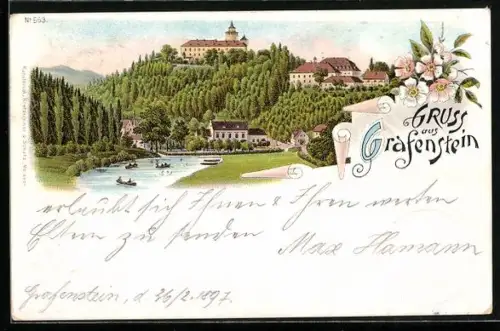 No 563.
GRUSS
aus
Grafenstein
erlaubt sich Ihnen & Ihren werten
Eltern zu senden
Max Hamann
Grafenstein, d 26/2. 1897.